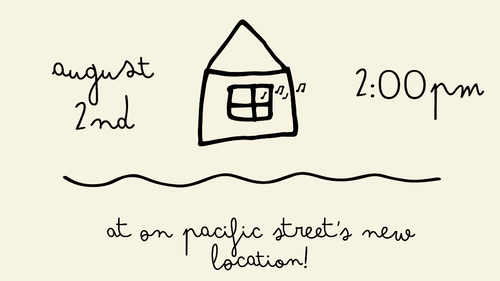 august
2nd
2:00pm
at on pacific street's new
location!